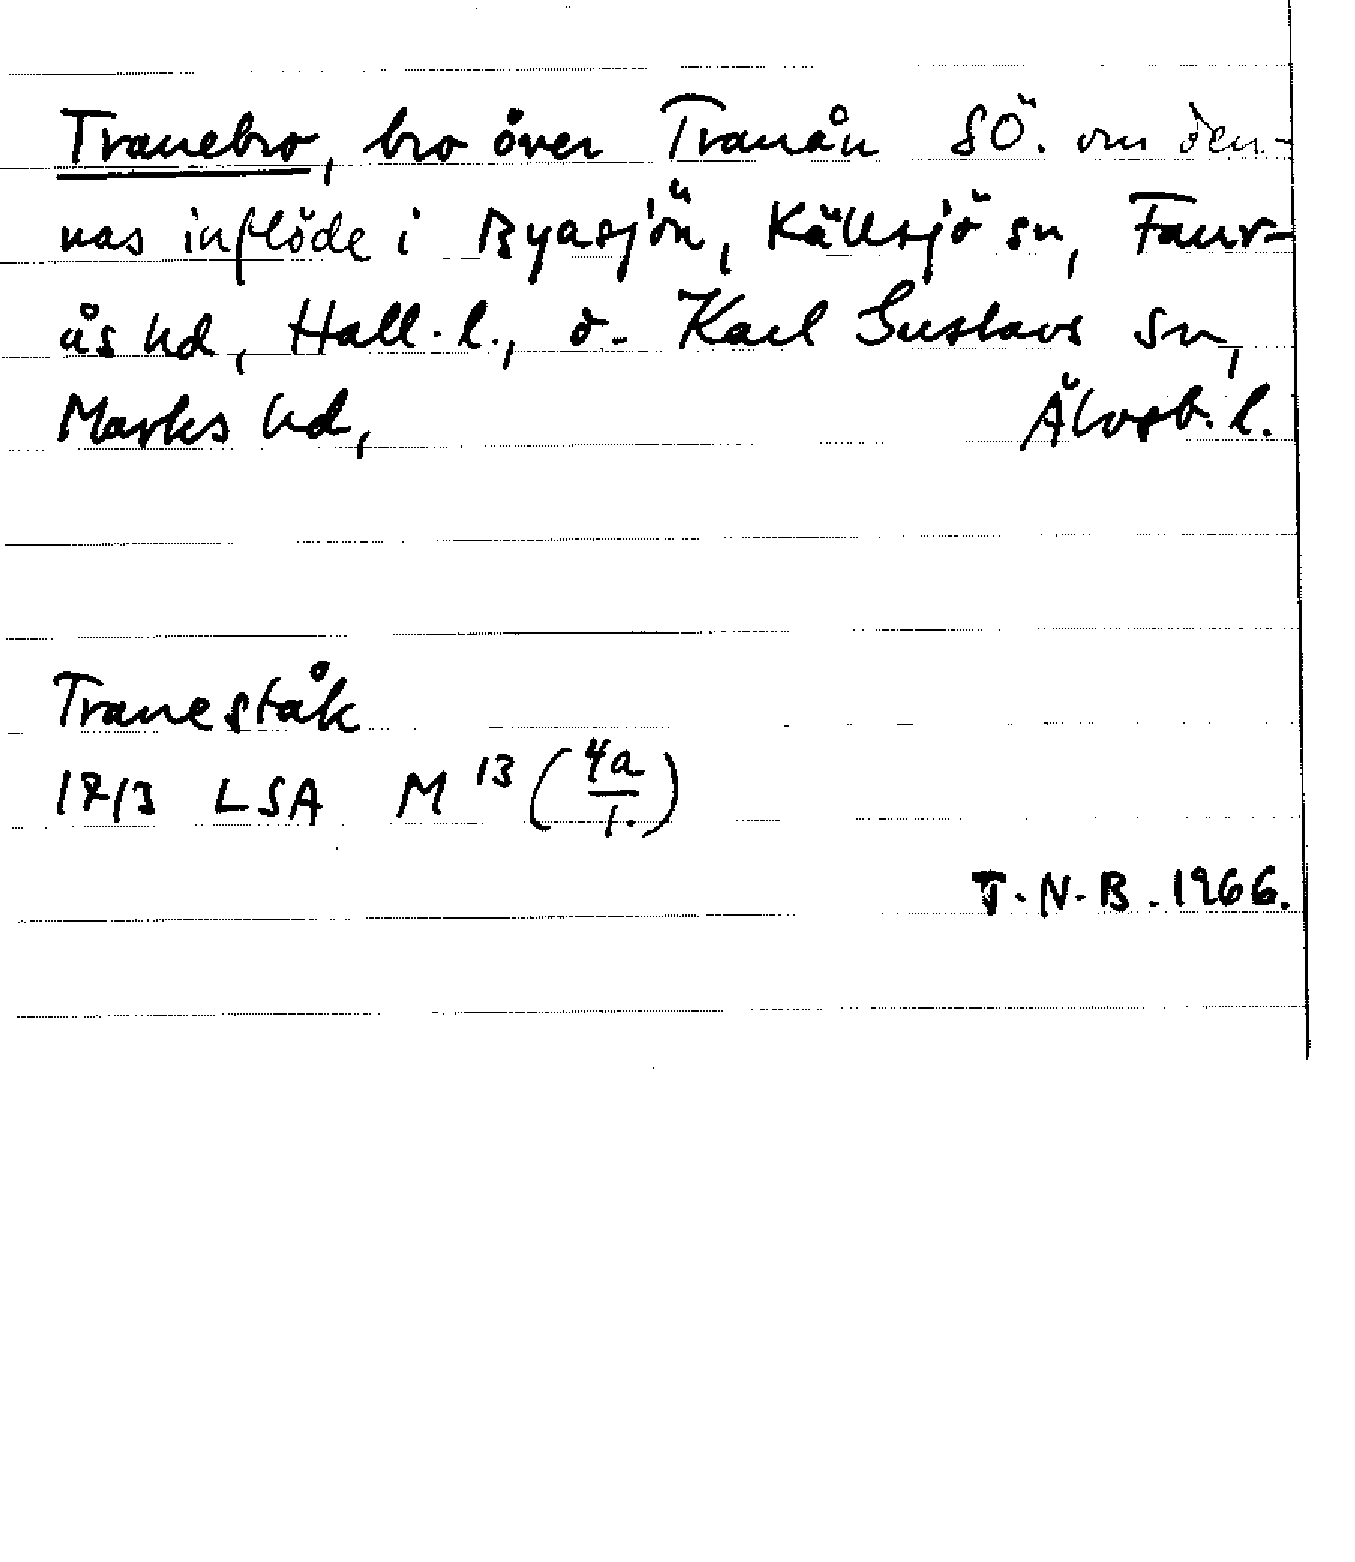 Tranebro, bro över Tranån SÖ. om den-
nas inflöde i Byasjön, Källsjö sn, Faur-
ås hd, Hall. l., o. Karl Gustavs sn,
Marks hd, Älvsb. l.
Tranestâk
1713 LSA M 13 (4a/1.)
T.N.B. 1966.